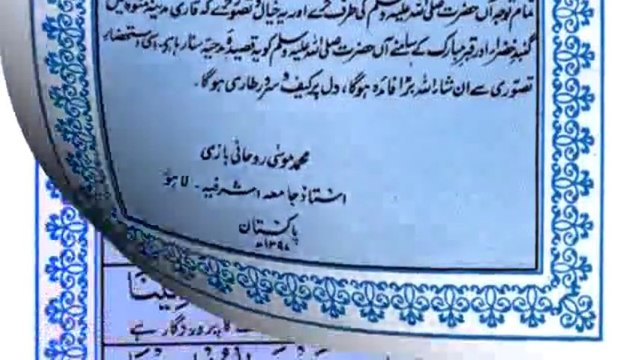 تمام توجہ آں حضرت صلی اللہ علیہ وسلم کی طرف کرے اور یہ خیال و تصور کرے کہ قاری مدینہ منورہ میں
گنبدِ خضراء اور قبر مبارک کے سامنے آں حضرت صلی اللہ علیہ وسلم کو یہ قصیدہ مدحیہ سنا رہا ہے۔ اسی استحضار
تصوری سے ان شاء اللہ بڑا فائدہ ہوگا، دل پر کیف و سرور طاری ہوگا۔
محمد موسٰی روحانی بازی
استاذ جامعہ اشرفیہ ۔ لاہور
پاکستان
۱۳۹۸ھ
پروردگار ہے